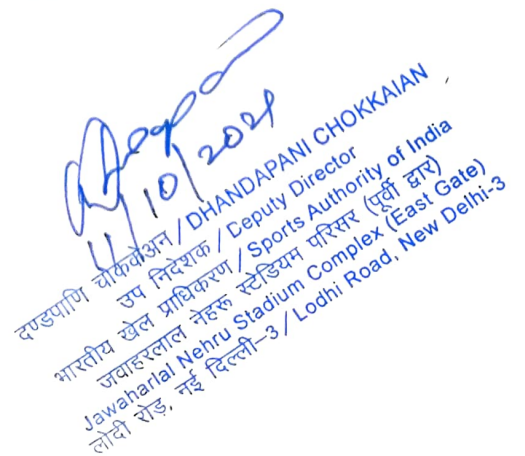 11/10/2021
दण्डपाणि चोकवौअन / DHANDAPANI CHOKKAIAN
उप निदेशक / Deputy Director
भारतीय खेल प्राधिकरण / Sports Authority of India
जवाहरलाल नेहरू स्टेडियम परिसर (पूर्वी द्वार)
Jawaharlal Nehru Stadium Complex (East Gate)
लोदी रोड़, नई दिल्ली-3 / Lodhi Road, New Delhi-3